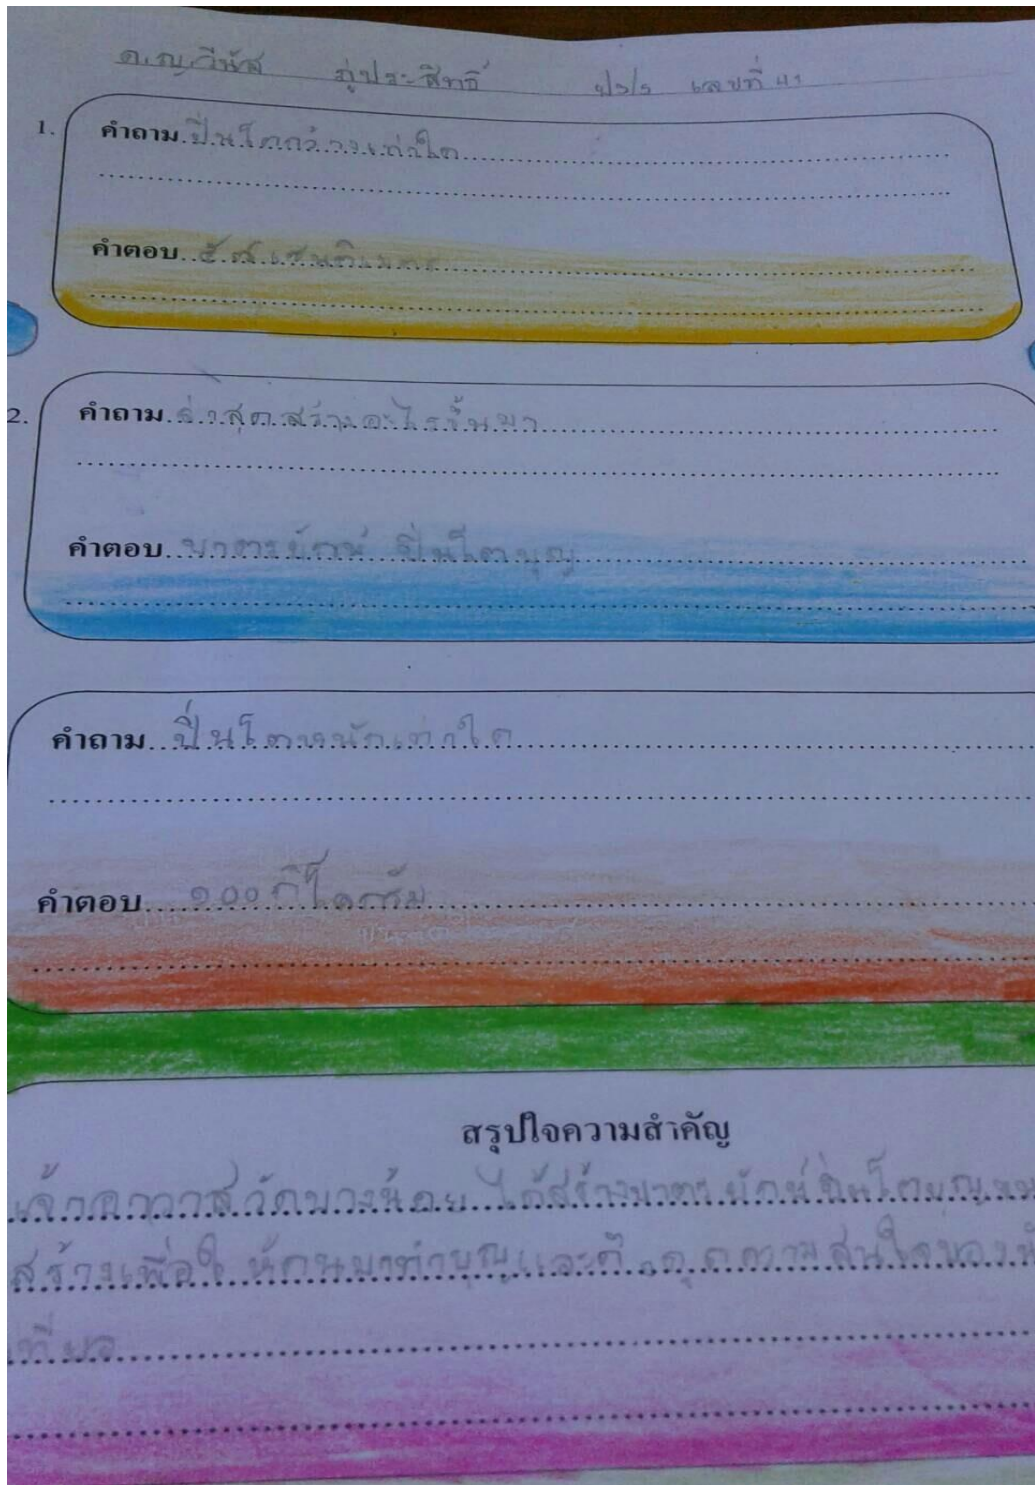 ด.ญ.วีนัส ภู่ประสิทธิ์ เลขที่ 41
1.
คำถาม ปิ่นโตกว้างเท่าใด
คำตอบ ๕๙ เซนติเมตร
2.
คำถาม ล่าสุดสร้างอะไรขึ้นมา
คำตอบ บาตรยักษ์ ปิ่นโตบุญ
คำถาม ปิ่นโตหนักเท่าใด
คำตอบ ๑๐๐ กิโลกรัม
สรุปใจความสำคัญ
เจ้าอาวาสวัดบางน้อย ได้สร้างบาตรยักษ์ ปิ่นโตบุญ
สร้างเพื่อให้คนมาทำบุญและดึงดุดความสนใจของ
เที่ยว